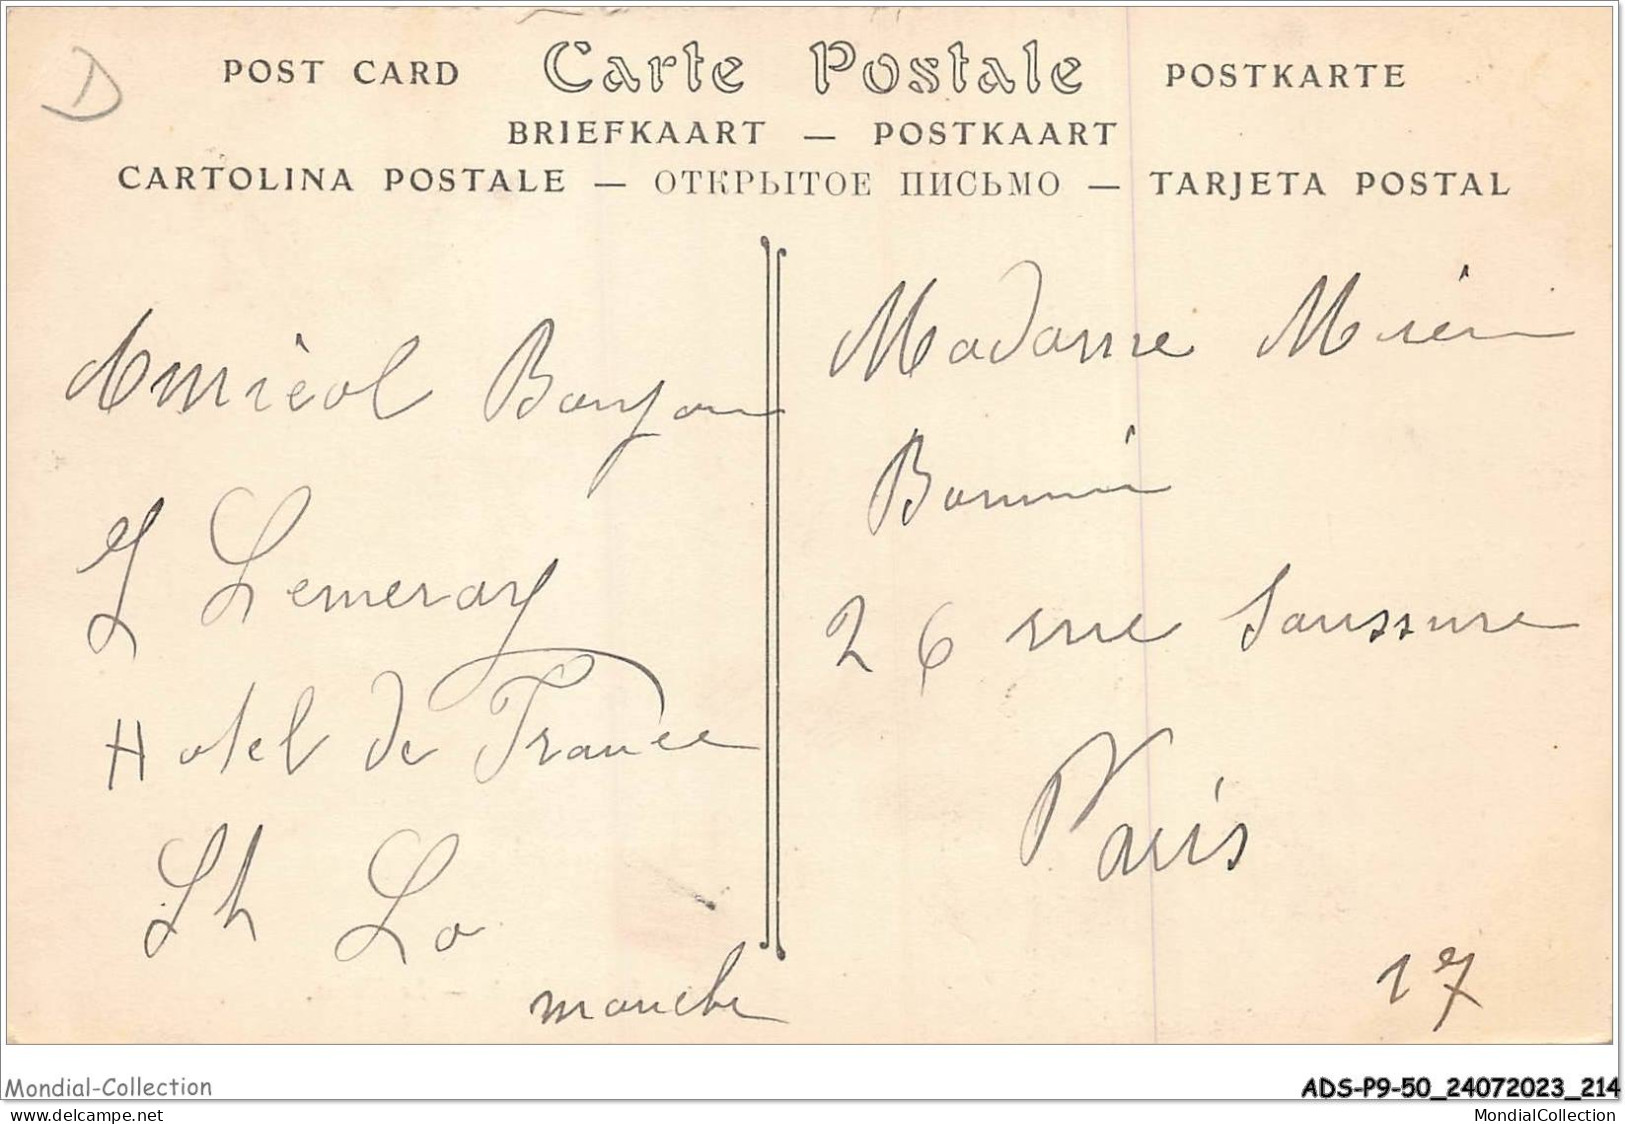 D
POST CARD Carte Postale POSTKARTE
BRIEFKAART — POSTKAART
CARTOLINA POSTALE — ОТКРЫТОЕ ПИСЬМО — TARJETA POSTAL
Amicol
L Lemeray
Hotel de France
St Lo
manche
Madame
26 rue Saussure
Paris
17
Mondial-Collection
ADS-P9-50_24072023_214
www.delcampe.net
MondialCollection